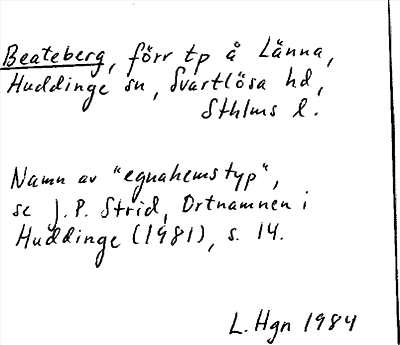 Beateberg, förr tp å Länna,
Huddinge sn, Svartlösa hd,
Sthlms l.
Namn av "egnahemstyp",
se J.P. Strid, Ortnamnen i
Huddinge (1981), s. 14.
L. Hgn 1984